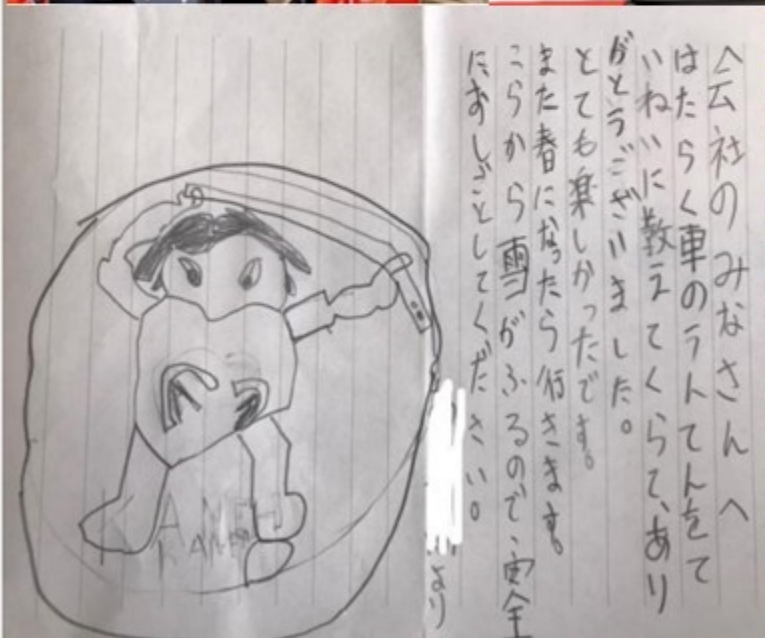 会社のみなさんへ
はたらく車のうんてんをて
いねいに教えてくらて、あり
がとうございました。
とても楽しかったです。
また春になったら行きます。
こらから雪がふるので、安全
におしごとしてくださいい。
より
KANEH
KAN